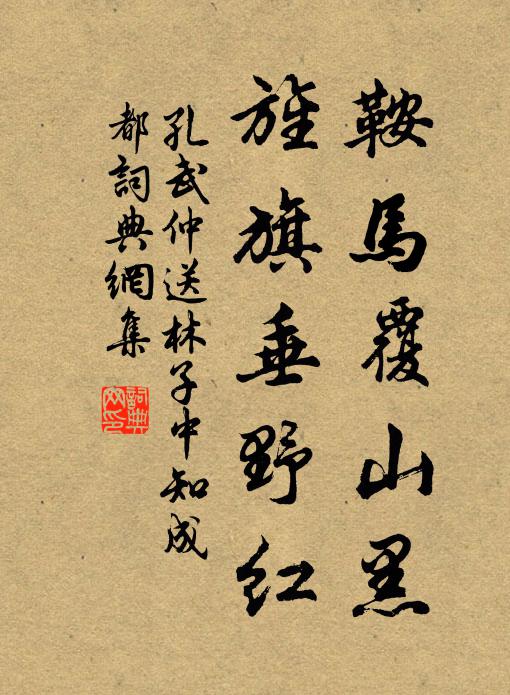 鞍馬覆山黑
旌旗垂野紅
孔武仲送林子中知成
都詞典網集
詞典網印